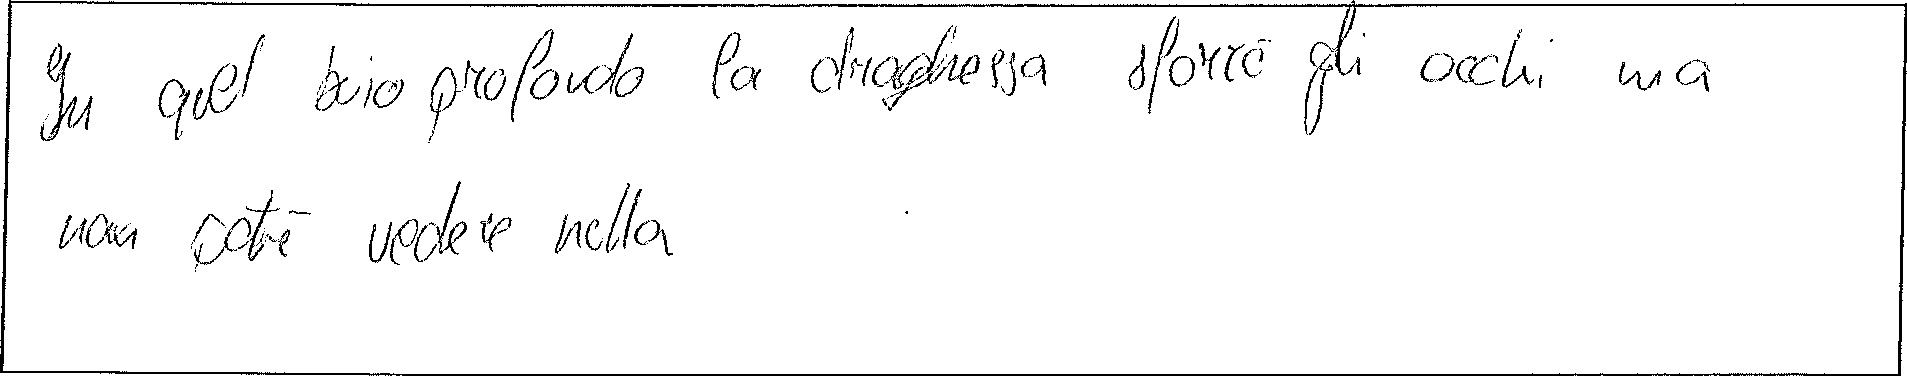 In quel buio profondo la draghessa sforzò gli occhi ma
non potè vedere nella